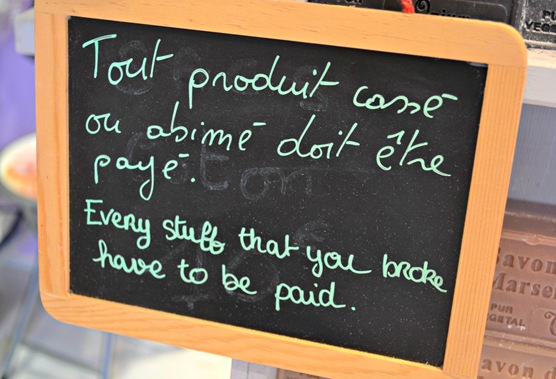 Tout produit cassé
ou abimé doit être
payé.
Every stuff that you broke
have to be paid.
Savon
Marse
PUR
avon